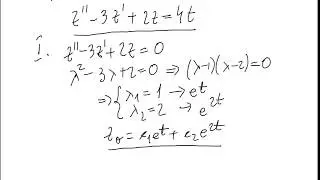 z'' - 3z' + 2z = 4t
I. z'' - 3z' + 2z = 0
λ² - 3λ + 2 = 0 ⇒ (λ-1)(λ-2) = 0
⇒ { λ₁ = 1 → eᵗ
λ₂ = 2 → e²ᵗ
z₀ = c₁eᵗ + c₂e²ᵗ